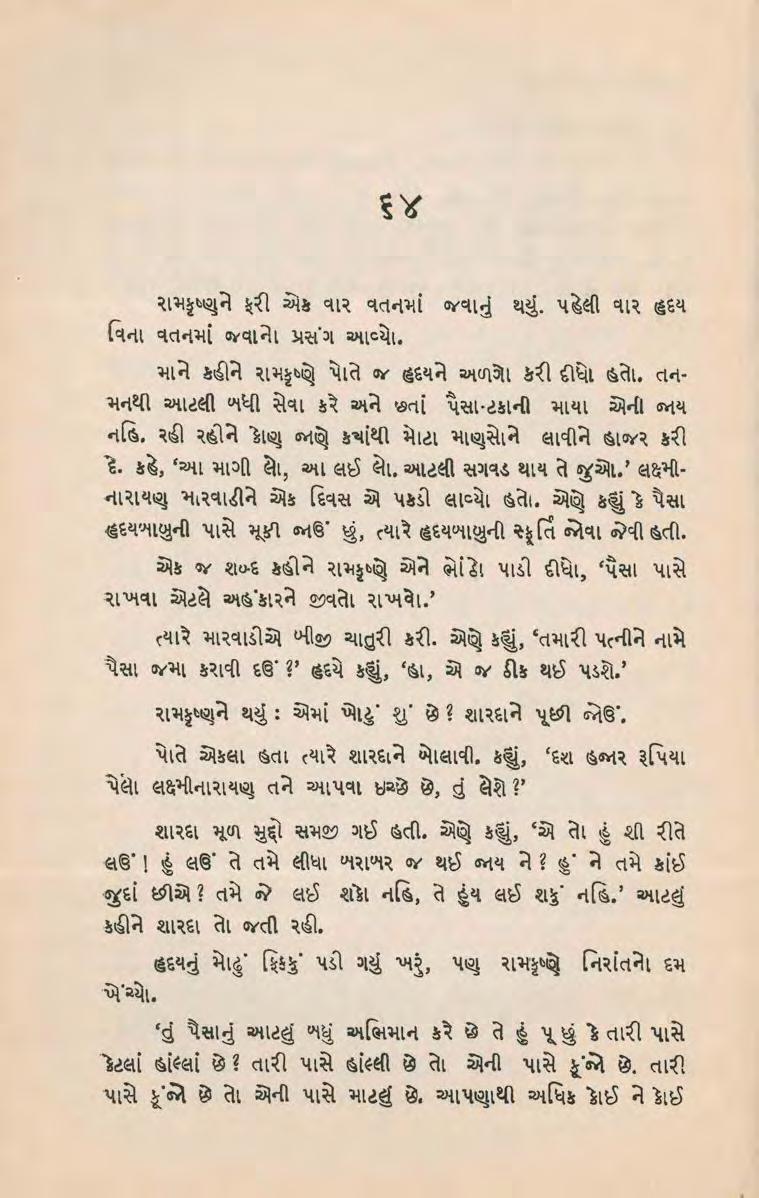 ૬૪
રામકૃષ્ણને ફરી એક વાર વતનમાં જવાનું થયું. પહેલી વાર હૃદય
વિના વતનમાં જવાનો પ્રસંગ આવ્યો.
માને કહીને રામકૃષ્ણે પોતે જ હૃદયને અળગો કરી દીધો હતો. તન-
મનથી આટલી બધી સેવા કરે અને છતાં પૈસા-ટકાની માયા એની જાય
નહિ. રહી રહીને કોણ જાણે કયાંથી મોટા માણસોને લાવીને હાજર કરી
દે. કહે, ‘આ માગી લો, આ લઈ લો. આટલી સગવડ થાય તે જુઓ.’ લક્ષ્મી-
નારાયણ મારવાડીને એક દિવસ એ પકડી લાવ્યો હતો. એણે કહ્યું કે પૈસા
હૃદયબાબુની પાસે મૂકી જાઉં છું, ત્યારે હૃદયબાબુની સ્ફૂર્તિ જોવા જેવી હતી.
એક જ શબ્દ કહીને રામકૃષ્ણે એને ભોંઠો પાડી દીધો, ‘પૈસા પાસે
રાખવા એટલે અહંકારને જીવતો રાખવો.’
ત્યારે મારવાડીએ બીજી ચાતુરી કરી. એણે કહ્યું, ‘તમારી પત્નીને નામે
પૈસા જમા કરાવી દઉં ?’ હૃદયે કહ્યું, ‘હા, એ જ ઠીક થઈ પડશે.’
રામકૃષ્ણને થયું : એમાં ખોટું શું છે? શારદાને પૂછી જોઉં.
પોતે એકલા હતા ત્યારે શારદાને બોલાવી. કહ્યું, ‘દશ હજાર રૂપિયા
પેલો લક્ષ્મીનારાયણ તને આપવા ઇચ્છે છે, તું લેશે ?’
શારદા મૂળ મુદ્દો સમજી ગઈ હતી. એણે કહ્યું, ‘એ તો હું શી રીતે
લઉં ! હું લઉં તે તમે લીધા બરાબર જ થઈ જાય ને? હું ને તમે કાંઈ
જુદાં છીએ? તમે જે લઈ શકો નહિ, તે હુંય લઈ શકું નહિ.’ આટલું
કહીને શારદા તો જતી રહી.
હૃદયનું મોઢું ફિક્કું પડી ગયું ખરું, પણ રામકૃષ્ણે નિરાંતનો દમ
ખેંચ્યો.
‘તું પૈસાનું આટલું બધું અભિમાન કરે છે તે હું પૂછું કે તારી પાસે
કેટલાં હાંલ્લાં છે? તારી પાસે હાંલ્લી છે તો એની પાસે કૂંજો છે. તારી
પાસે કૂંજો છે તો એની પાસે માટલું છે. આપણાથી અધિક કોઈ ને કોઈ